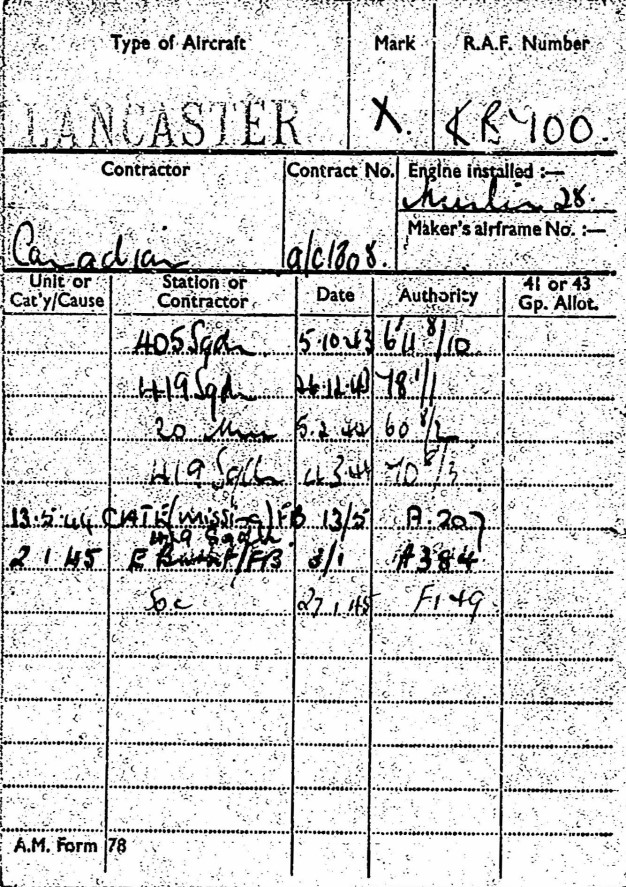 Type of Aircraft Mark R.A.F. Number
LANCASTER X. KB 700.
Contractor Contract No. Engine installed :—
Merlin 28.
Maker's airframe No. :—
Canadian a/c/1808.
Unit or Cat'y/Cause Station or Contractor Date Authority 41 or 43 Gp. Allot.
405 Sqdn 5.10.43
419 Sqdn
20 5.2.44 60
419 Sqdn 70
13.5.44 (Missing) FB 13/5 A.207
419 Sqdn
2 1 45 E Burnt/FB 3/1 A384
Soc 27.1.45 F149
A.M. Form 78